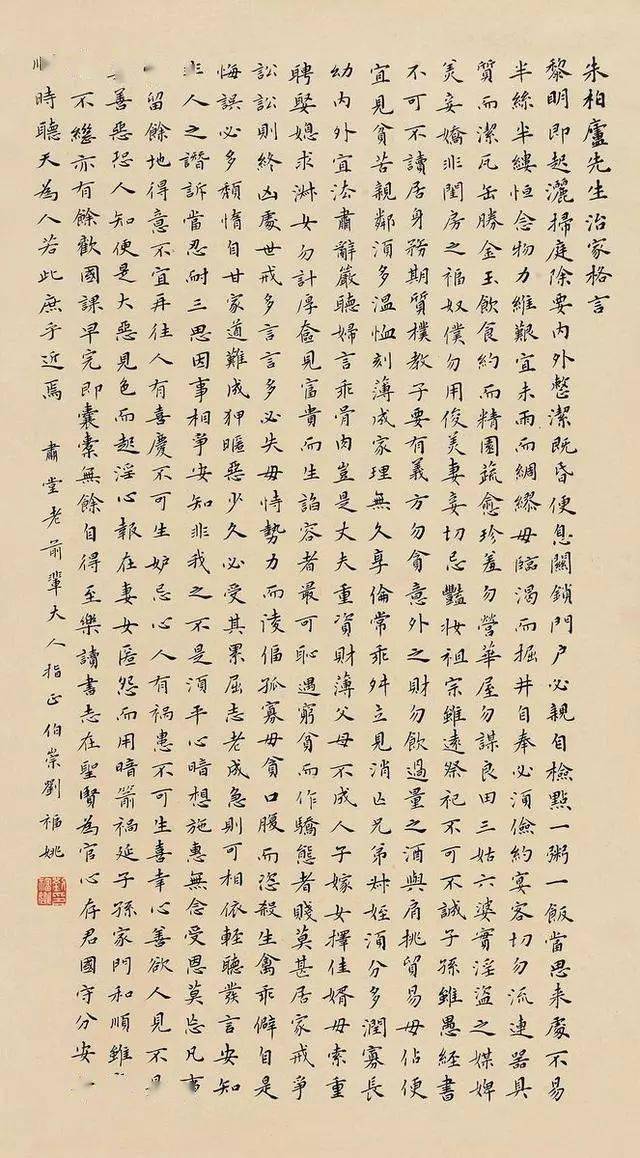 朱柏廬先生治家格言
黎明即起灑掃庭除要內外整潔既昏便息關鎖門户必親自檢點一粥一飯當思来處不易
半絲半縷恒念物力維艱宜未雨而綢繆毋臨渴而掘井自奉必須儉約宴客切勿流連器具
質而潔瓦缶勝金玉飲食約而精園蔬愈珍羞勿營華屋勿謀良田三姑六婆實淫盜之媒婢
美妾嬌非閨房之福奴僕勿用俊美妻妾切忌豔妝祖宗雖遠祭祀不可不誠子孫雖愚經書
不可不讀居身務期質樸教子要有義方勿貪意外之財勿飲過量之酒與肩挑貿易毋佔便
宜見貧苦親鄰須多溫恤刻薄成家理無久享倫常乖舛立見消亡兄弟叔姪須分多潤寡長
幼內外宜法肅辭嚴聽婦言乖骨肉豈是丈夫重資財薄父母不成人子嫁女擇佳婿毋索重
聘娶媳求淑女勿計厚奩見富貴而生諂容者最可恥遇窮貧而作驕態者賤莫甚居家戒爭
訟訟則終凶處世戒多言言多必失毋恃勢力而淩偪孤寡毋貪口腹而恣殺生禽乖僻自是
悔誤必多頹惰自甘家道難成狎暱惡少久必受其累屈志老成急則可相依輕聽發言安知
非人之譖訴當忍耐三思因事相爭安知非我之不是須平心暗想施惠無念受恩莫忘凡事
留餘地得意不宜再往人有喜慶不可生妒忌心人有禍患不可生喜幸心善欲人見不
善惡恐人知便是大惡見色而起淫心報在妻女匿怨而用暗箭禍延子孫家門和順雖
不繼亦有餘歡國課早完即囊橐無餘自得至樂讀書志在聖賢為官心存君國守分安
時聽天為人若此庶乎近焉 肅堂老前輩大人指正伯崇劉福姚